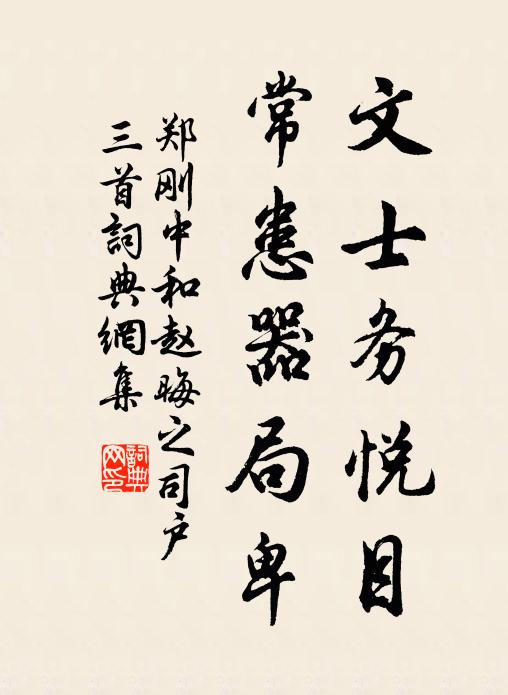 文士务悦目
常患器局卑
郑刚中和赵晦之司户
三首詞典網集
詞典
网印